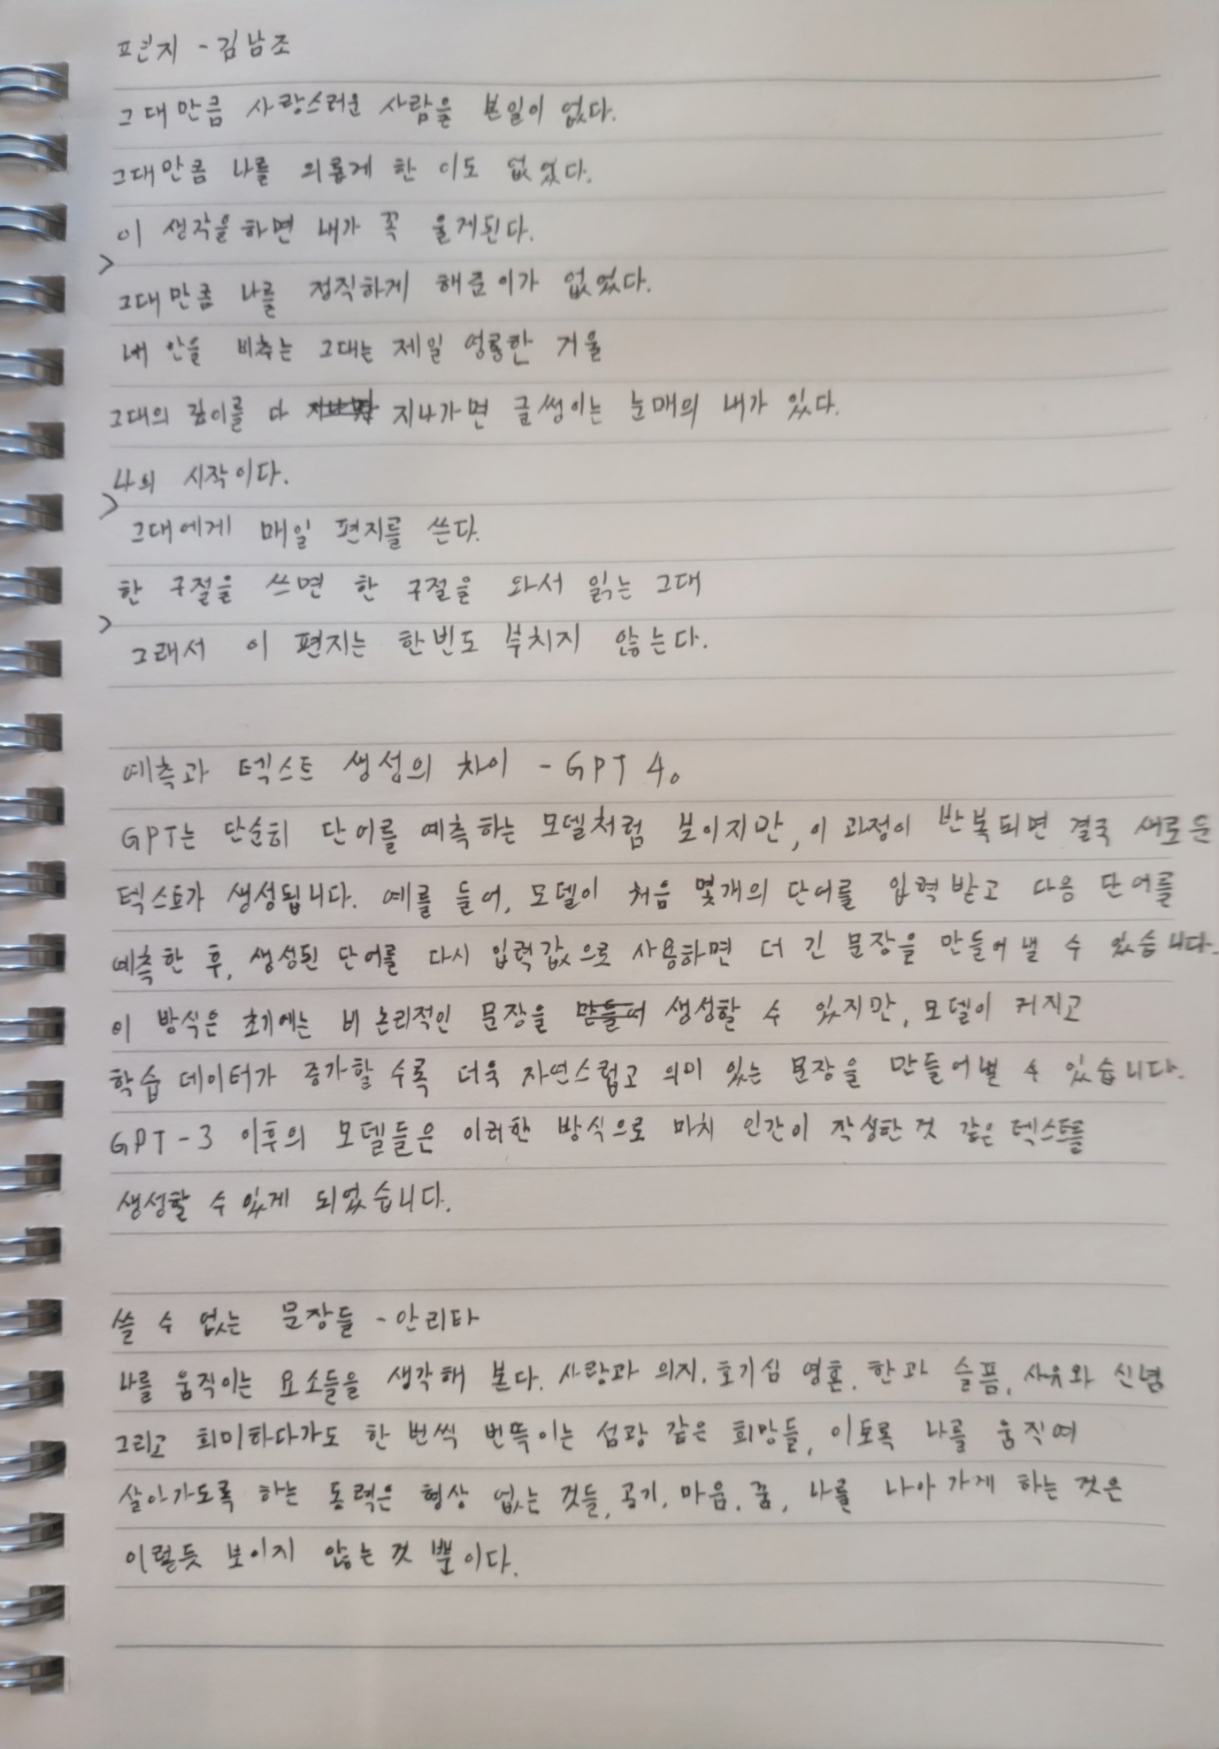 편지 - 김남조
그대만큼 사랑스러운 사람을 본일이 없다.
그대만큼 나를 외롭게 한 이도 없었다.
이 생각을하면 내가 꼭 울게된다.
>
그대만큼 나를 정직하게 해준이가 없었다.
내 안을 비추는 그대는 제일 영롱한 거울
그대의 깊이를 다 지나가면 글썽이는 눈매의 내가 있다.
나의 시작이다.
>
그대에게 매일 편지를 쓴다.
한 구절을 쓰면 한 구절을 와서 읽는 그대
>
그래서 이 편지는 한번도 부치지 않는다.
예측과 텍스트 생성의 차이 - GPT 4o
GPT는 단순히 단어를 예측하는 모델처럼 보이지만, 이 과정이 반복되면 결국 새로운
텍스트가 생성됩니다. 예를 들어, 모델이 처음 몇개의 단어를 입력받고 다음 단어를
예측한 후, 생성된 단어를 다시 입력값으로 사용하면 더 긴 문장을 만들어 낼 수 있습니다.
이 방식은 초기에는 비 논리적인 문장을 생성할 수 있지만, 모델이 커지고
학습 데이터가 증가할 수록 더욱 자연스럽고 의미 있는 문장을 만들어낼 수 있습니다.
GPT-3 이후의 모델들은 이러한 방식으로 마치 인간이 작성한것 같은 텍스트를
생성할 수 있게 되었습니다.
쓸 수 없는 문장들 - 안리타
나를 움직이는 요소들을 생각해 본다. 사랑과 의지. 호기심 영혼. 한과 슬픔, 사유와 신념
그리고 희미하다가도 한 번씩 번뜩이는 섬광 같은 희망들, 이토록 나를 움직여
살아가도록 하는 동력은 형상 없는 것들, 공기, 마음. 꿈, 나를 나아가게 하는 것은
이렇듯 보이지 않는것 뿐이다.